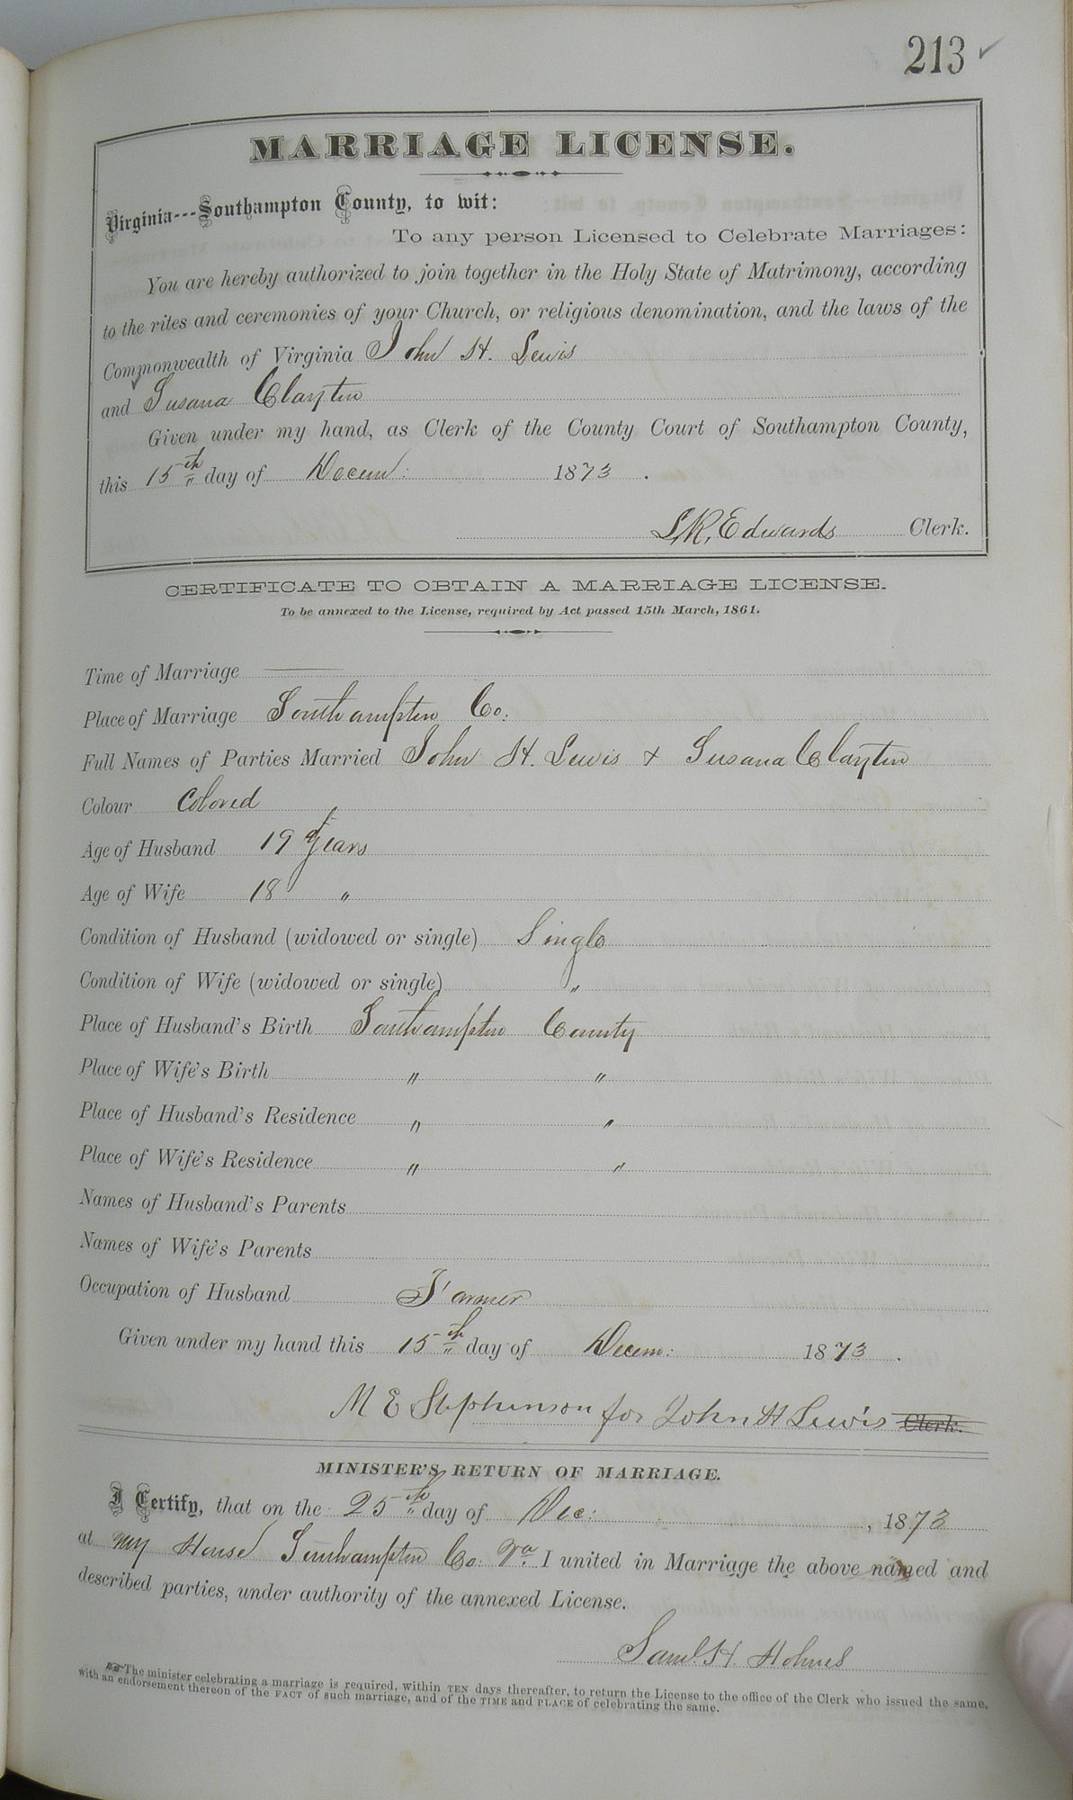 213 ✓
MARRIAGE LICENSE.
Virginia---Southampton County, to wit:
To any person Licensed to Celebrate Marriages:
You are hereby authorized to join together in the Holy State of Matrimony, according
to the rites and ceremonies of your Church, or religious denomination, and the laws of the
Commonwealth of Virginia John H. Lewis
and Susana Clayton
Given under my hand, as Clerk of the County Court of Southampton County,
this 15th day of Decem: 1873.
L. R. Edwards Clerk.
CERTIFICATE TO OBTAIN A MARRIAGE LICENSE.
To be annexed to the License, required by Act passed 15th March, 1861.
Time of Marriage —
Place of Marriage Southampton Co:
Full Names of Parties Married John H. Lewis + Susana Clayton
Colour Colored
Age of Husband 19 years
Age of Wife 18 "
Condition of Husband (widowed or single) Single
Condition of Wife (widowed or single) "
Place of Husband's Birth Southampton County
Place of Wife's Birth " "
Place of Husband's Residence " "
Place of Wife's Residence " "
Names of Husband's Parents
Names of Wife's Parents
Occupation of Husband Farmer
Given under my hand this 15th day of Decem: 1873.
M E Stephenson for John H Lewis Clerk.
MINISTER'S RETURN OF MARRIAGE.
I Certify, that on the 25th day of Dec:, 1873
at my House Southampton Co: Va. I united in Marriage the above named and
described parties, under authority of the annexed License.
Saml. H. Holmes
☞ The minister celebrating a marriage is required, within TEN days thereafter, to return the License to the office of the Clerk who issued the same,
with an endorsement thereon of the FACT of such marriage, and of the TIME and PLACE of celebrating the same.